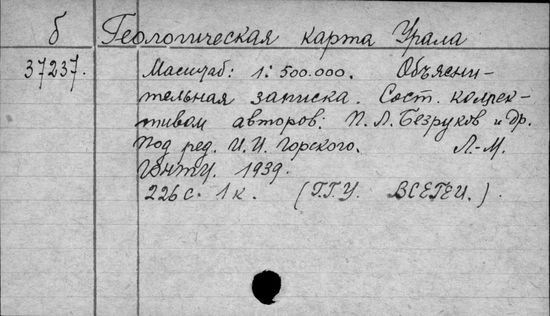 б Геологическая карта Урала
37237. Масштаб: 1:500.000. Объясни-
тельная записка. Сост. коллек-
тивом авторов: П.Л. Безруков и др.
Под ред. И.И. Горского. Л.-М.
ГОНТИ. 1939.
226 с. 1 к. (Г.Г.У. ВСЕГЕИ.)